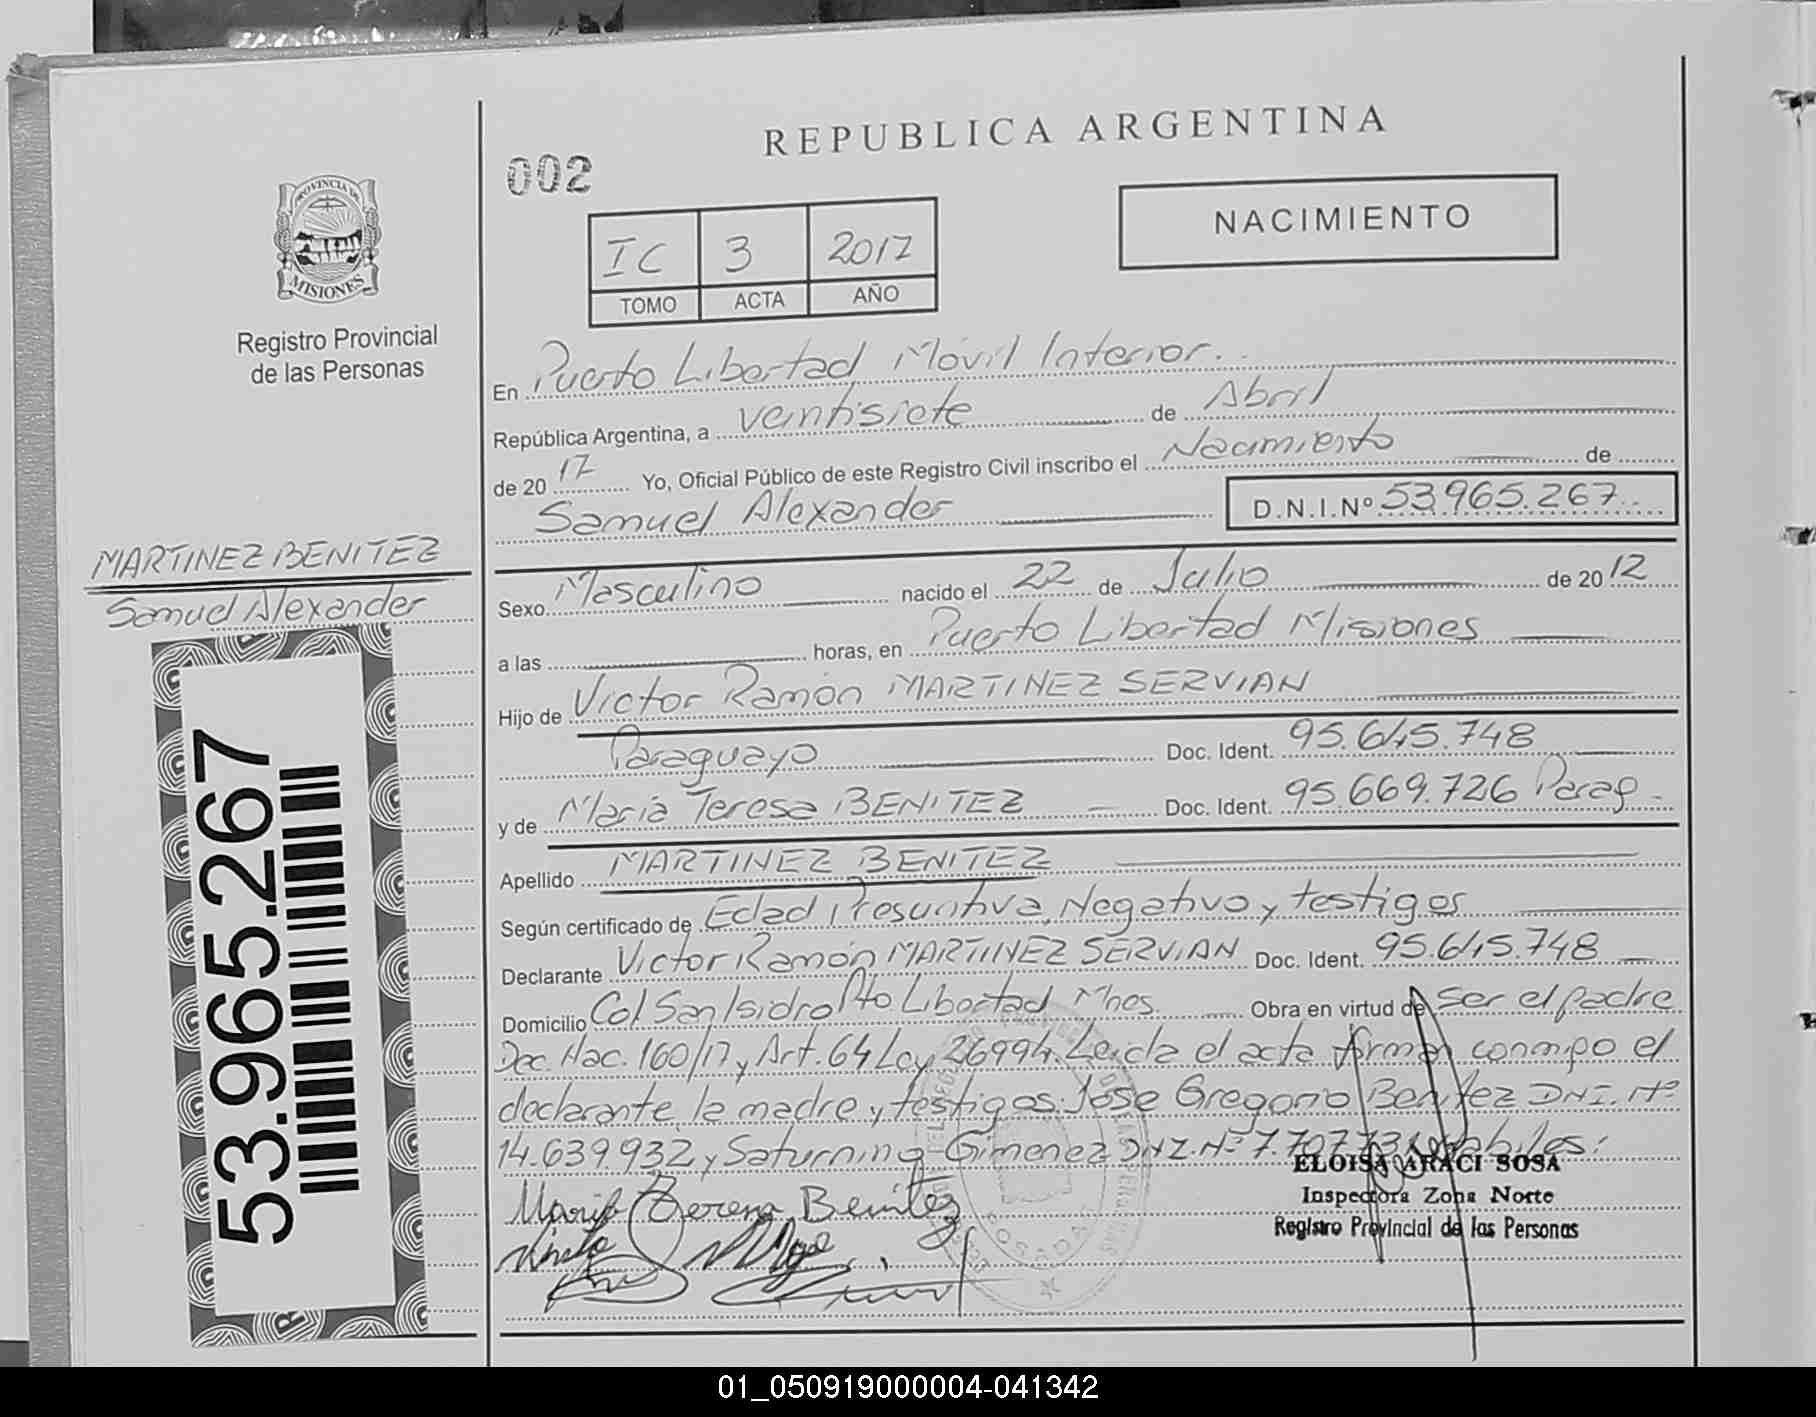 REPUBLICA ARGENTINA
002
NACIMIENTO
IC 3 2017
TOMO ACTA AÑO
PROVINCIA DE
MISIONES
Registro Provincial
de las Personas
En Puerto Libertad Móvil Interior.
República Argentina, a veintisiete de Abril
de 20 17 Yo, Oficial Público de este Registro Civil inscribo el Nacimiento de
Samuel Alexander D.N.I.Nº 53.965.267
MARTINEZ BENITEZ
Samuel Alexander
53.965.267
Sexo Masculino nacido el 22 de Julio de 20 12
a las horas, en Puerto Libertad Misiones
Hijo de Victor Ramón MARTINEZ SERVIAN
Paraguayo Doc. Ident. 95.645.748
y de María Teresa BENITEZ Doc. Ident. 95.669.726 Parag-
Apellido MARTINEZ BENITEZ
Según certificado de Edad Presuntiva, Negativo y testigos
Declarante Victor Ramón MARTINEZ SERVIAN Doc. Ident. 95.645.748
Domicilio Col San Isidro Pto Libertad Mnes. Obra en virtud de Ser el padre
Dec. Nac. 160/17 y Art. 64 Ley 26994. Leida el acta firman conmigo el
declarante, la madre y testigos: Jose Gregorio Benitez DNI. Nº
14.639.932 y Saturnino Gimenez DNI. Nº
ELOISA ARACI SOSA
Inspectora Zona Norte
Registro Provincial de las Personas
Benitez
POSADAS
01_050919000004-041342